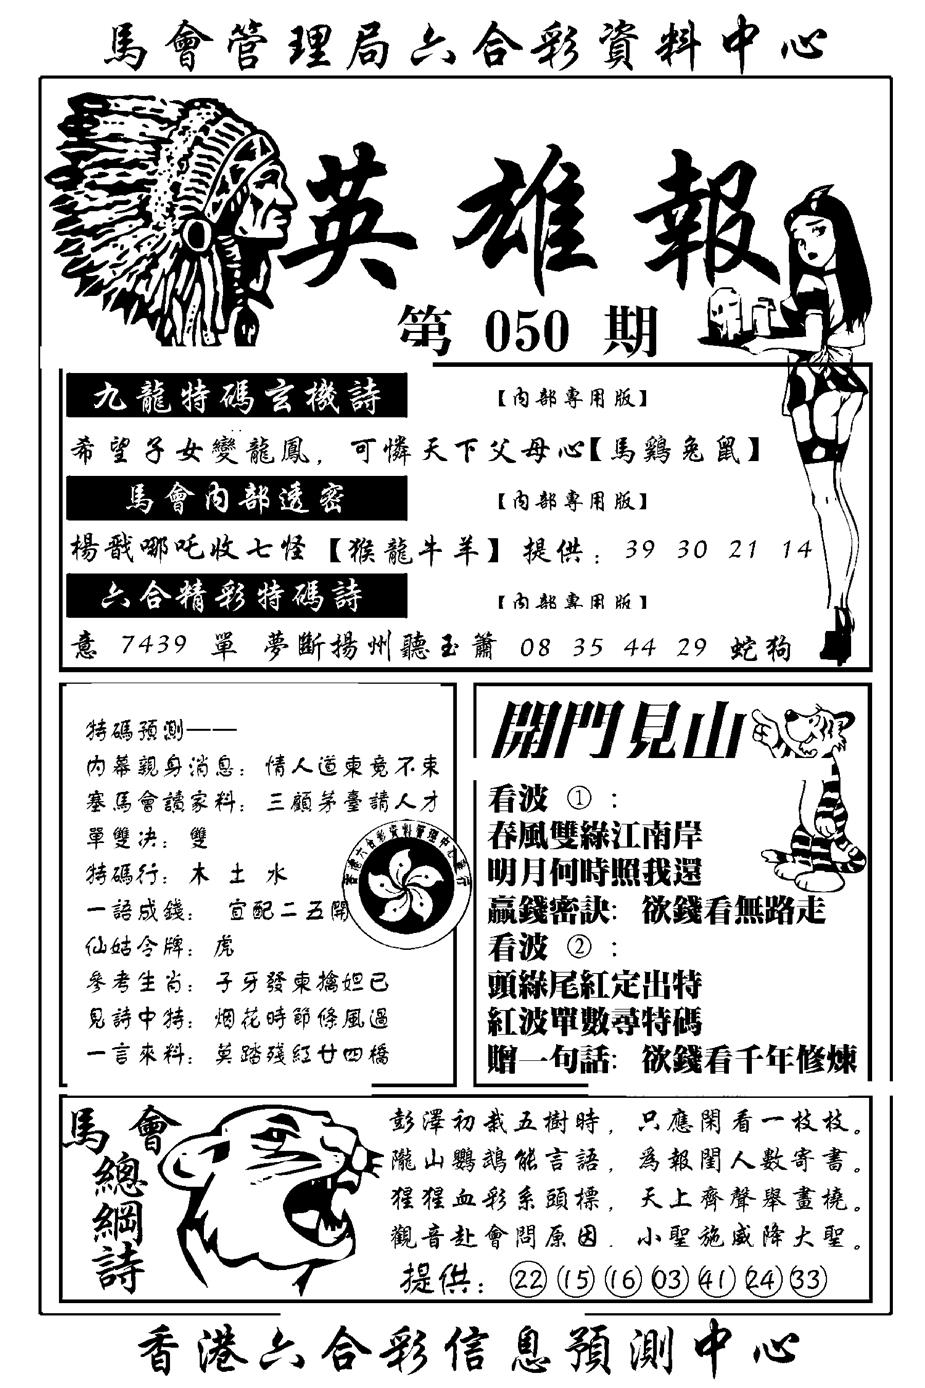 馬會管理局六合彩資料中心
英雄報
第 050 期
九龍特碼玄機詩 【內部專用版】
希望子女變龍鳳，可憐天下父母心【馬鷄兔鼠】
馬會內部透密 【內部專用版】
楊戩哪吒收七怪【猴龍牛羊】提供：39 30 21 14
六合精彩特碼詩 【內部專用版】
意 7439 單 夢斷揚州聽玉簫 08 35 44 29 蛇狗
特碼預測——
內幕親身消息：情人道東竟不東
塞馬會讀家料：三顧茅臺請人才
單雙决：雙
特碼行：木 土 水
一語成錢： 宜配二五開
仙姑令牌：虎
參考生肖：子牙發東擒妲己
見詩中特：烟花時節條風過
一言來料：莫踏殘紅廿四橋
香港六合彩資料管理中心發行
開門見山
看波 ①：
春風雙綠江南岸
明月何時照我還
贏錢密訣：欲錢看無路走
看波 ②：
頭綠尾紅定出特
紅波單數尋特碼
贈一句話：欲錢看千年修煉
馬會總綱詩
彭澤初栽五樹時，只應閑看一枝枝。
隴山鸚鵡能言語，為報閨人數寄書。
猩猩血彩系頭標，天上齊聲舉畫橈。
觀音赴會問原因．小聖施威降大聖。
提供：22 15 16 03 41 24 33
香港六合彩信息預測中心